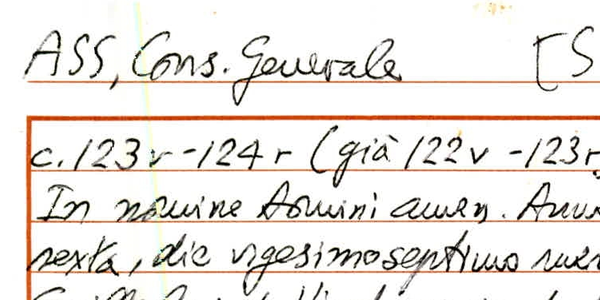 ASS, Cons. Generale [S
c. 123v-124r (già 122v-123r
In nomine domini amen.
sexta, die vigesimoseptimo